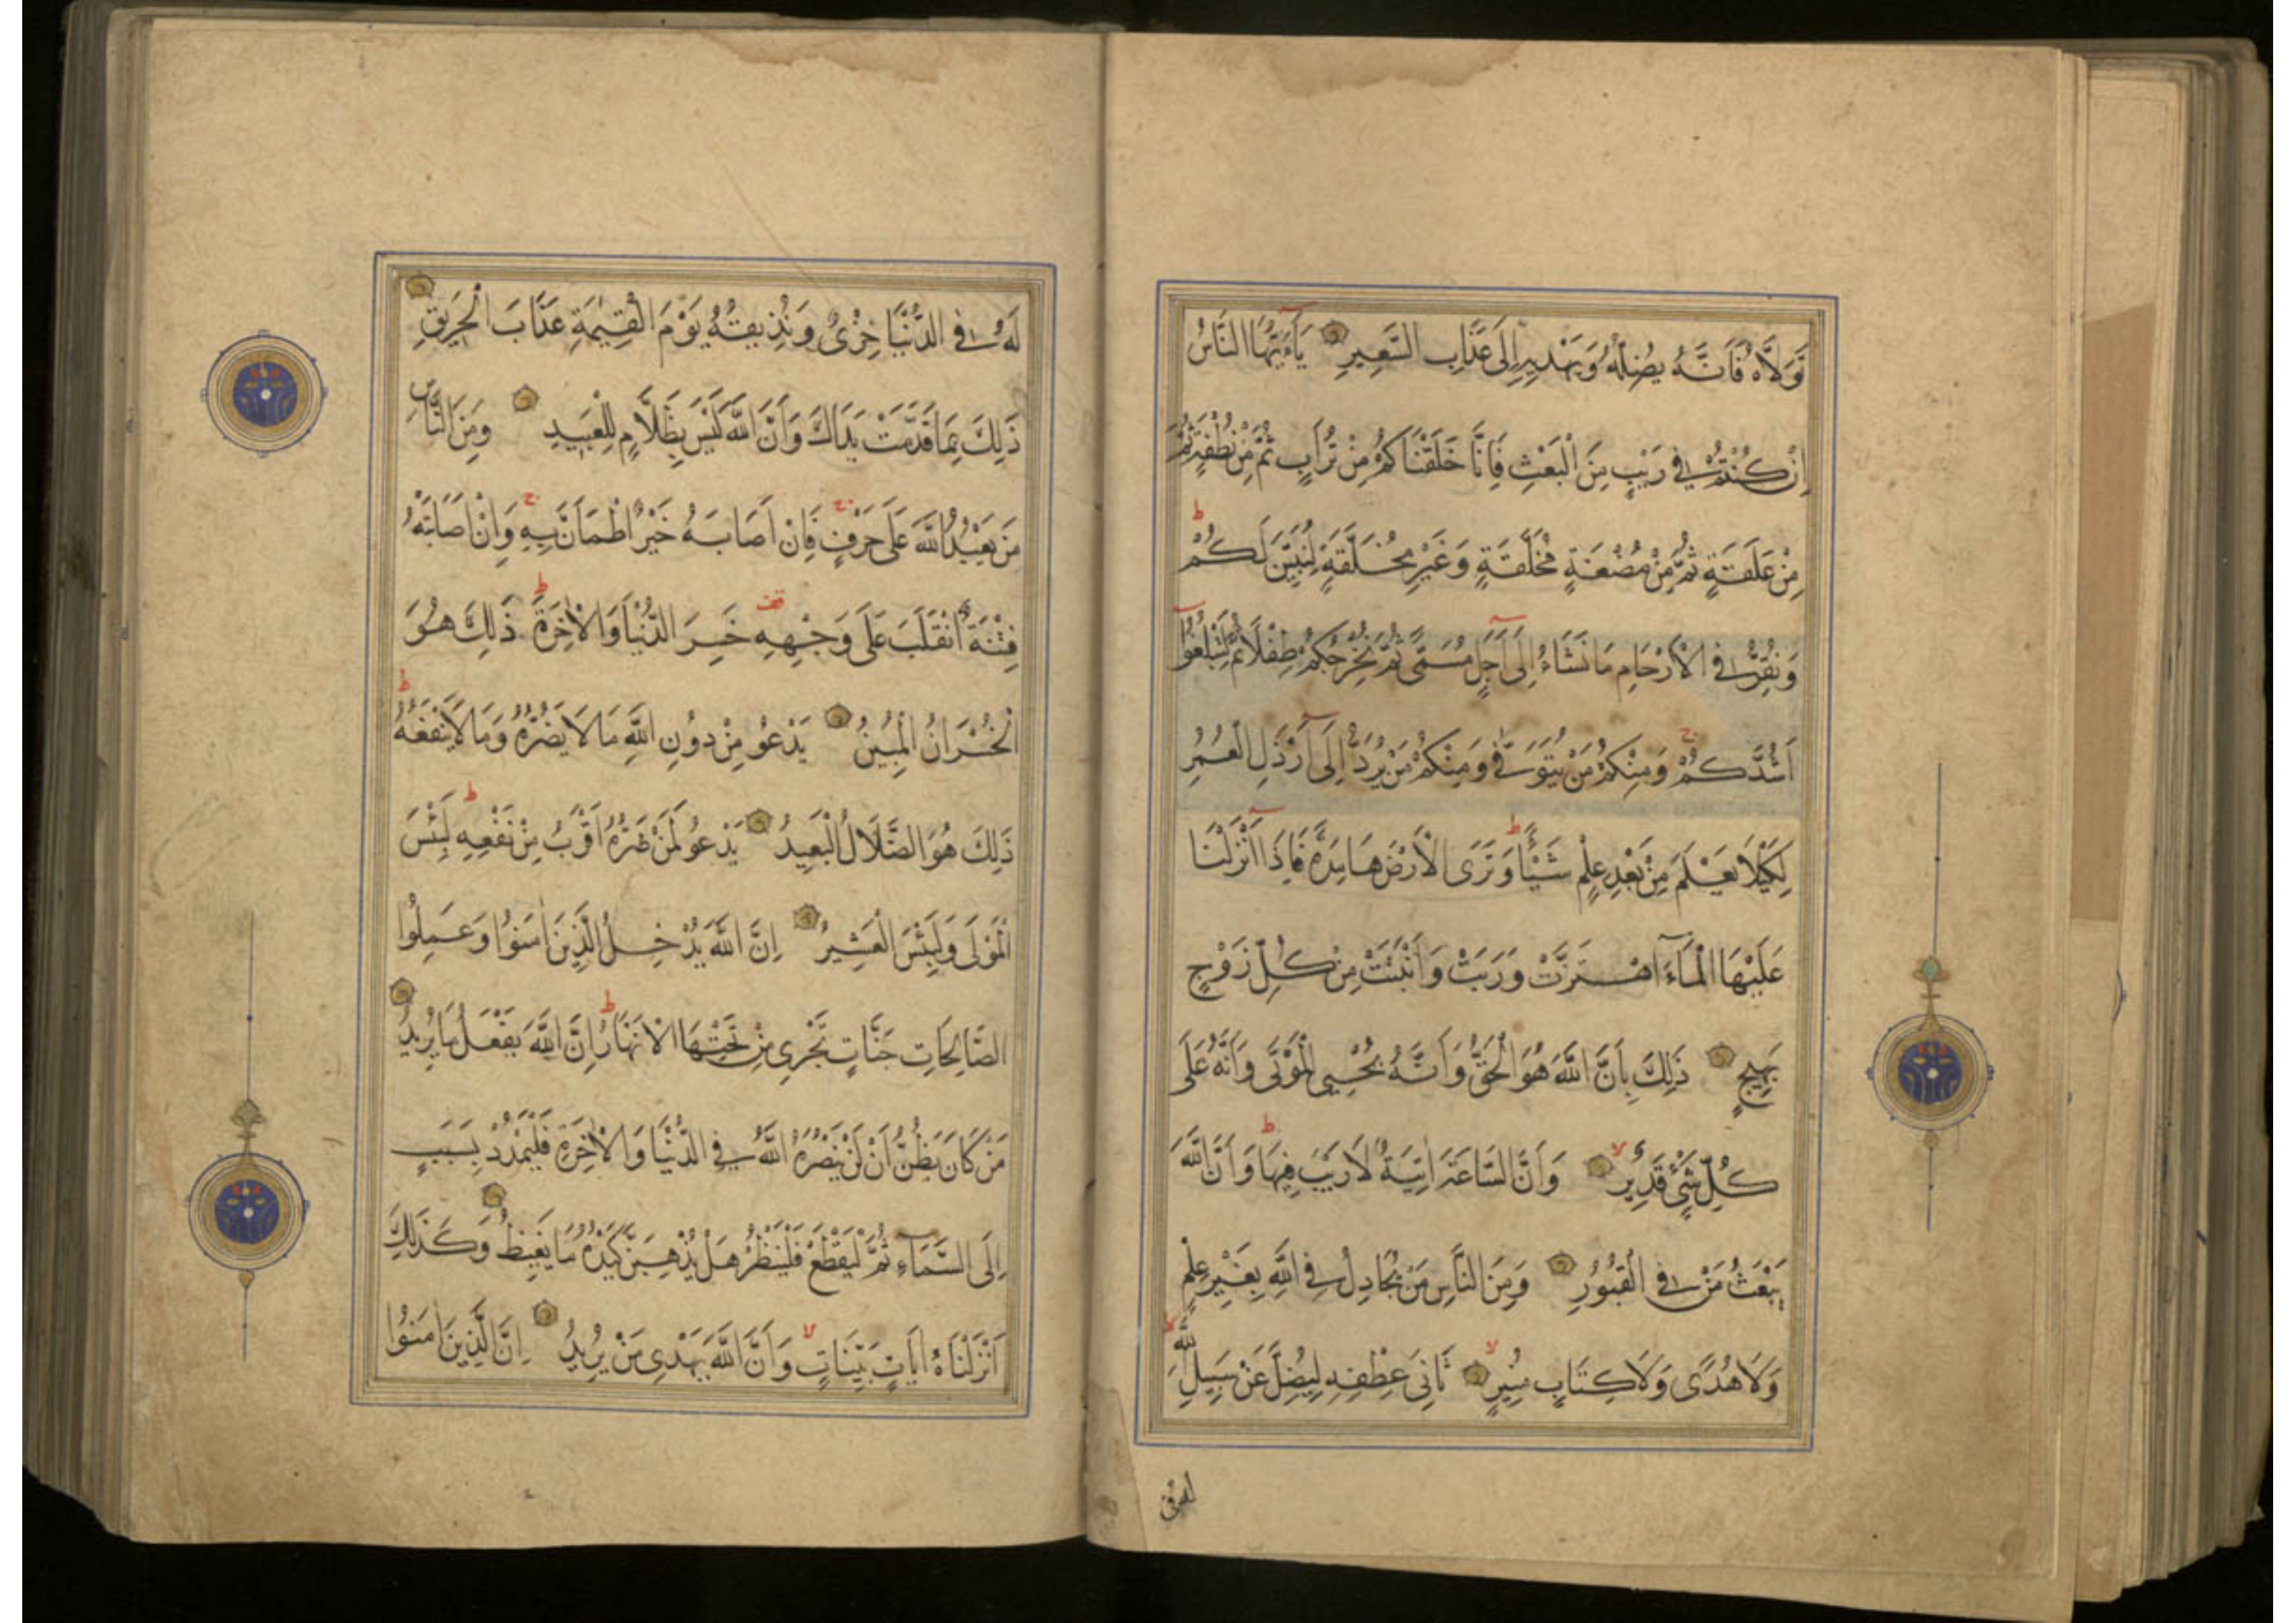 تَوَلَّاهُ فَاَنَّهُ يُضِلُّهُ وَيَهْدِيهِ اِلَى عَذَابِ السَّعِيرِ يَآءَيُّهَا النَّاسُ
اِنْ كُنْتُمْ فِي رَيْبٍ مِنَ الْبَعْثِ فَاِنَّا خَلَقْنَاكُمْ مِنْ تُرَابٍ ثُمَّ مِنْ نُطْفَةٍ ثُمَّ
مِنْ عَلَقَةٍ ثُمَّ مِنْ مُضْغَةٍ مُخَلَّقَةٍ وَغَيْرِ مُخَلَّقَةٍ لِنُبَيِّنَ لَكُمْ ط
وَنُقِرُّ فِي الْاَرْحَامِ مَا نَشَاءُ اِلَى اَجَلٍ مُسَمًّى ثُمَّ نُخْرِجُكُمْ طِفْلًا ثُمَّ لِتَبْلُغُوا
اَشُدَّكُمْ ج وَمِنْكُمْ مَنْ يُتَوَفَّى وَمِنْكُمْ مَنْ يُرَدُّ اِلَى اَرْذَلِ الْعُمُرِ
لِكَيْلَا يَعْلَمَ مِنْ بَعْدِ عِلْمٍ شَيْئًا ط وَتَرَى الْاَرْضَ هَامِدَةً فَاِذَا اَنْزَلْنَا
عَلَيْهَا الْمَآءَ اهْتَزَّتْ وَرَبَتْ وَاَنْبَتَتْ مِنْ كُلِّ زَوْجٍ
بَهِيجٍ ذَلِكَ بِاَنَّ اللَّهَ هُوَ الْحَقُّ وَاَنَّهُ يُحْيِي الْمَوْتَى وَاَنَّهُ عَلَى
كُلِّ شَيْءٍ قَدِيرٌ لا وَاَنَّ السَّاعَةَ اٰتِيَةٌ لَارَيْبَ فِيهَا ط وَاَنَّ اللَّهَ
يَبْعَثُ مَنْ فِي الْقُبُورِ وَمِنَ النَّاسِ مَنْ يُجَادِلُ فِي اللَّهِ بِغَيْرِ عِلْمٍ
وَلَا هُدًى وَلَا كِتَابٍ مُنِيرٍ لا ثَانِيَ عِطْفِهِ لِيُضِلَّ عَنْ سَبِيلِ اللَّهِ ط
لَهُ فِي الدُّنْيَا خِزْىٌ وَنُذِيقُهُ يَوْمَ الْقِيٰمَةِ عَذَابَ الْحَرِيقِ
ذَلِكَ بِمَا قَدَّمَتْ يَدَاكَ وَاَنَّ اللَّهَ لَيْسَ بِظَلَّامٍ لِلْعَبِيدِ وَمِنَ النَّاسِ
مَنْ يَعْبُدُ اللَّهَ عَلَى حَرْفٍ ج فَاِنْ اَصَابَهُ خَيْرٌ اطْمَاَنَّ بِهِ ج وَاِنْ اَصَابَتْهُ
فِتْنَةٌ انْقَلَبَ عَلَى وَجْهِهِ قف خَسِرَ الدُّنْيَا وَالْاٰخِرَةَ ط ذَلِكَ هُوَ
الْخُسْرَانُ الْمُبِينُ يَدْعُو مِنْ دُونِ اللَّهِ مَا لَا يَضُرُّهُ وَمَا لَا يَنْفَعُهُ ط
ذَلِكَ هُوَ الضَّلَالُ الْبَعِيدُ يَدْعُو لَمَنْ ضَرُّهُ اَقْرَبُ مِنْ نَفْعِهِ ط لَبِئْسَ
الْمَوْلَى وَلَبِئْسَ الْعَشِيرُ اِنَّ اللَّهَ يُدْخِلُ الَّذِينَ اٰمَنُوا وَعَمِلُوا
الصَّالِحَاتِ جَنَّاتٍ تَجْرِى مِنْ تَحْتِهَا الْاَنْهَارُ ط اِنَّ اللَّهَ يَفْعَلُ مَا يُرِيدُ
مَنْ كَانَ يَظُنُّ اَنْ لَنْ يَنْصُرَهُ اللَّهُ فِي الدُّنْيَا وَالْاٰخِرَةِ فَلْيَمْدُدْ بِسَبَبٍ
اِلَى السَّمَآءِ ثُمَّ لْيَقْطَعْ فَلْيَنْظُرْ هَلْ يُذْهِبَنَّ كَيْدُهُ مَا يَغِيظُ وَكَذَلِكَ
اَنْزَلْنَاهُ اٰيَاتٍ بَيِّنَاتٍ لا وَاَنَّ اللَّهَ يَهْدِى مَنْ يُرِيدُ اِنَّ الَّذِينَ اٰمَنُوا